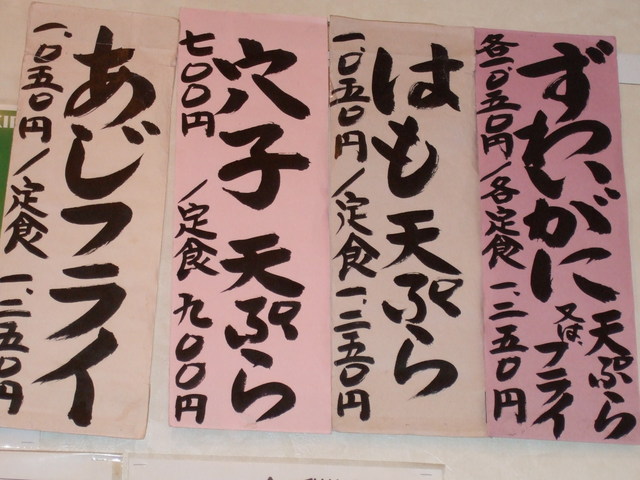 ずわいがに天ぷら又はフライ
各一、〇五〇円/各定食一、二五〇円
はも天ぷら
一、〇五〇円/定食一、二五〇円
穴子天ぷら
七〇〇円/定食九〇〇円
あじフライ
一、〇五〇円/定食一、二五〇円